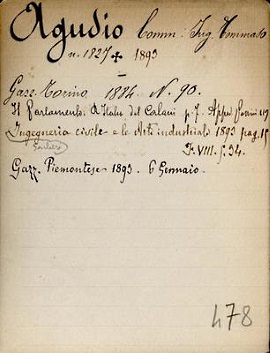 Agudio Comm. Ing. Tommaso
n. 1827 + 1893
Gazz. Torino 1884. N. 90.
Il Parlamento d'Italia del Calani p. 7. App.
Ingegneria civile e le Arti industriali 1893 pag. 15
F. VIII. f. 34.
Gazz. Piemontese 1893. 6 Gennaio.
478